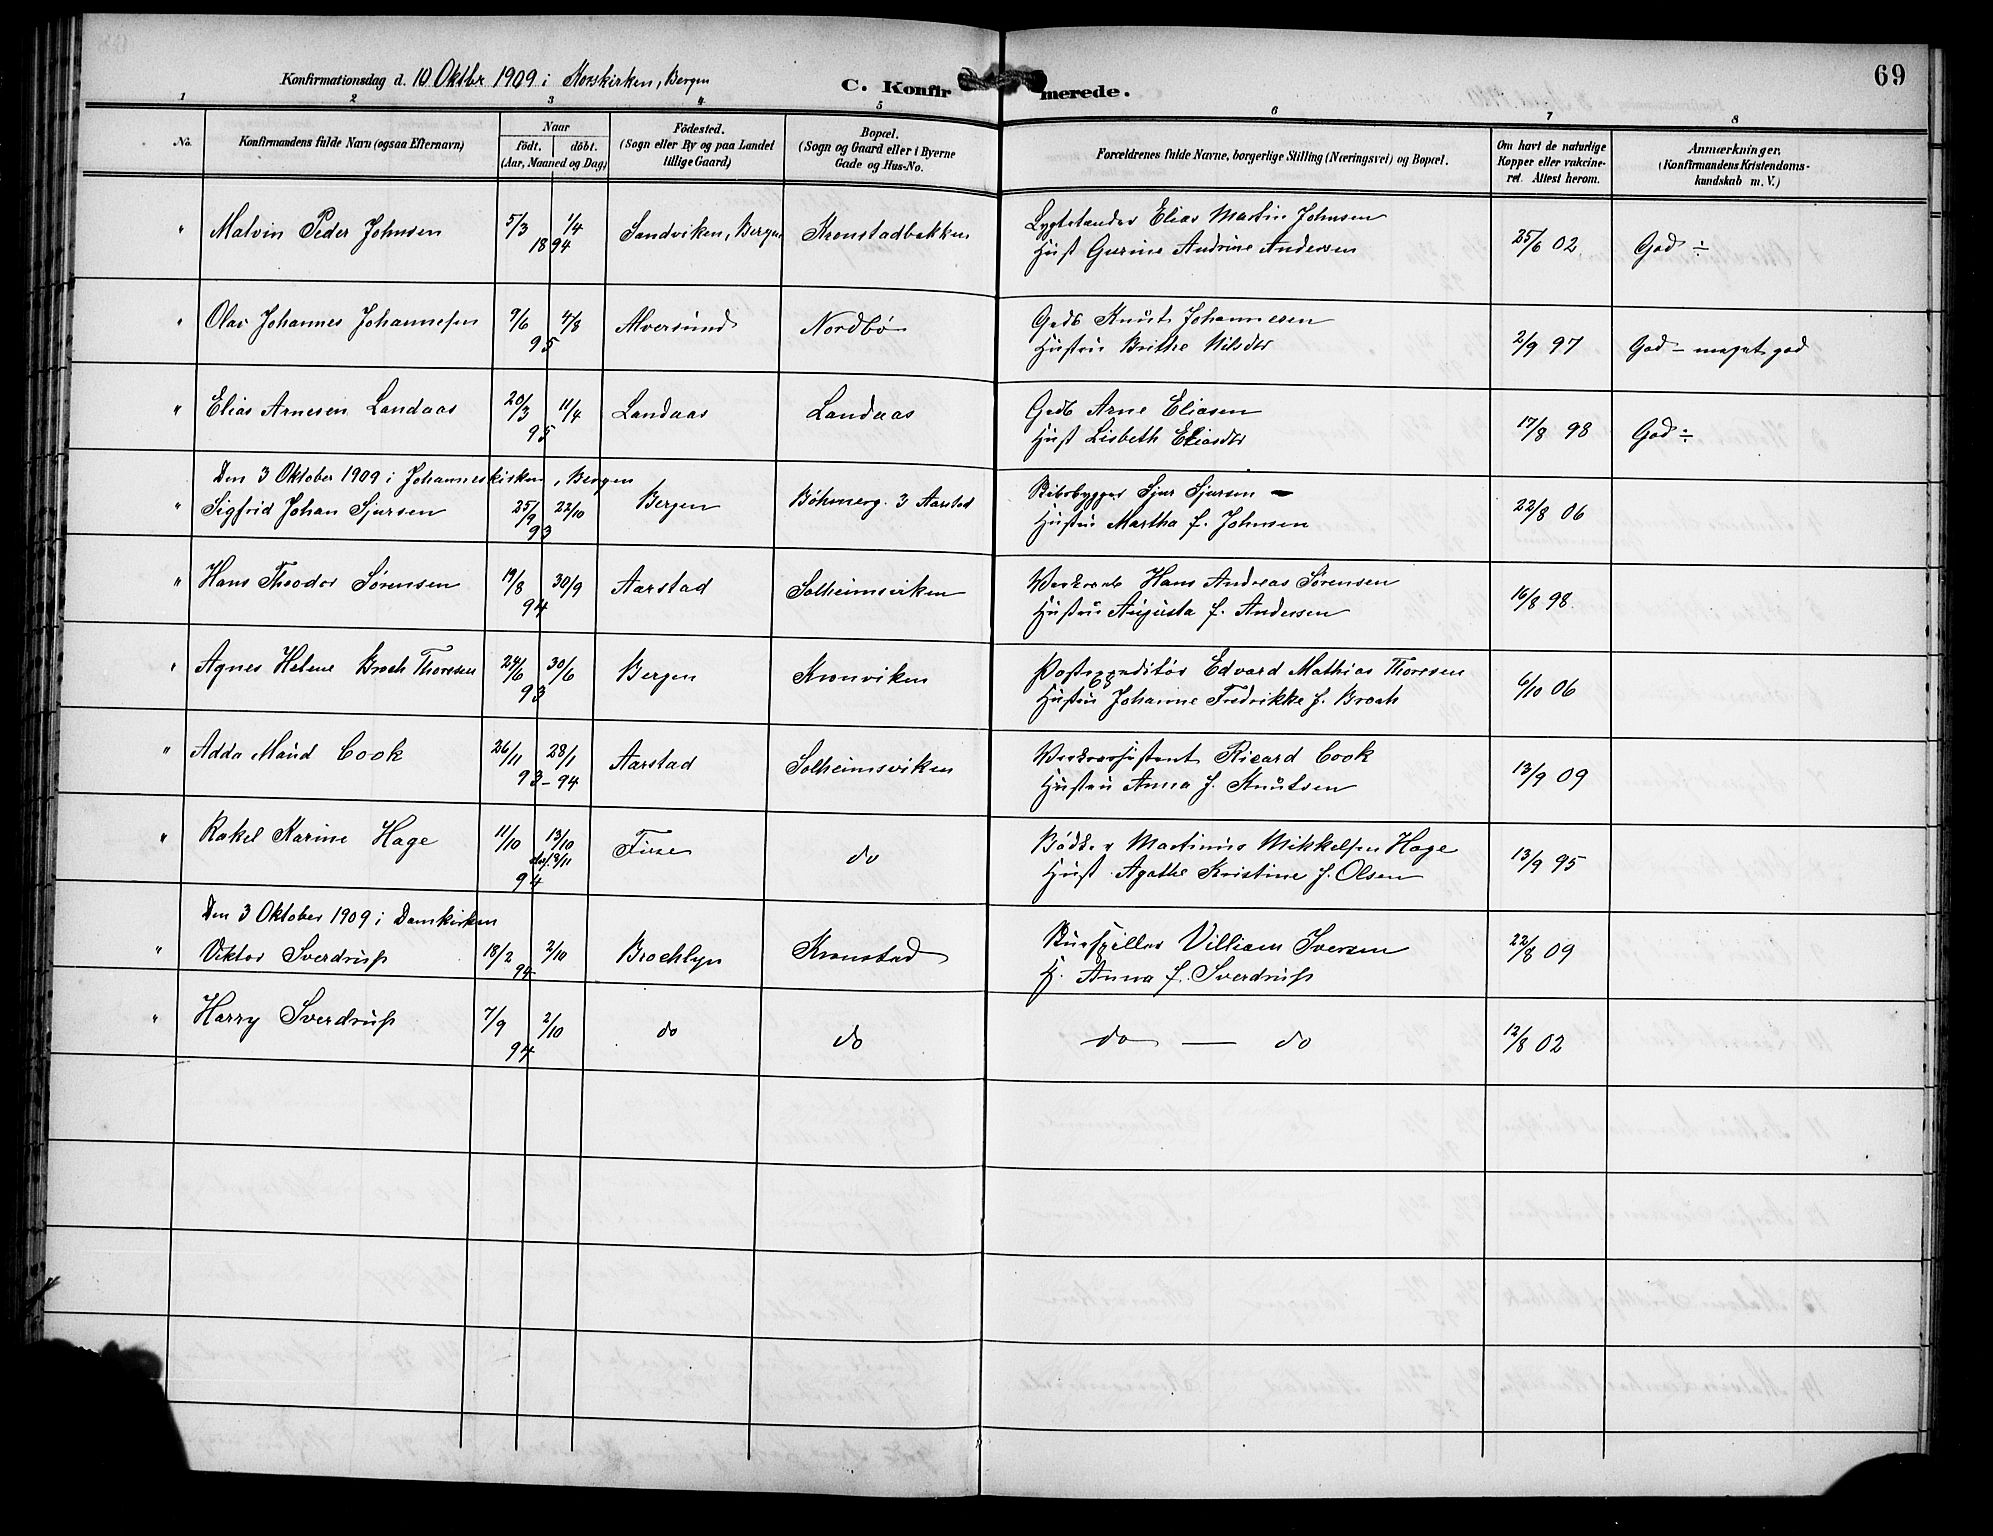 69
Konfirmationsdag d. 10 Oktbr 1909 i Korskirken, Bergen
C. Konfirmerede.
1 2 3 4 5 6 7 8
No. Konfirmandens fulde Navn (ogsaa Efternavn) Naar födt. döbt. (Aar, Maaned og Dag) Födested. (Sogn eller By og paa Landet tillige Gaard) Bopæl. (Sogn og Gaard eller i Byerne Gade og Hus-No. Forældrenes fulde Navne, borgerlige Stilling (Næringsvei) og Bopæl. Om havt de naturlige Kopper eller vakcineret. Attest herom. Anmærkninger. (Konfirmandens Kristendomskundskab m. V.)
" Malvin Peder Johnsen 5/3 1/4 1894 Sandviken, Bergen Kronstadbakken Lygtetænder Elias Martin Johnsen 25/6 02 God ÷
Hust Gurine Andrine Andersen
" Olav Johannes Johannesen 9/6 4/8 95 Alversund Nordbø Gadb Knut Johannesen 2/9 97 God – meget god
Hustru Brithe Nilsdtr
" Elias Arnesen Landaas 20/3 11/4 95 Landaas Landaas Gadb Arne Eliasen 17/8 98 God ÷
Hust Lisbeth Eliasdtr
Den 3 Oktober 1909 i Johanneskirken, Bergen
" Sigfrid Johan Sjursen 25/9 22/10 93 Bergen Böhmerg. 3 Aarstad Skibsbygger Sjur Sjursen – 22/8 06
Hustru Martha f. Johnsen
" Hans Theodor Sörensen 19/8 30/9 94 Aarstad Solheimsviken Hans Andreas Sörensen 16/8 98
Hustru Augusta f. Andersen
" Agnes Helene Broch Thoresen 24/6 30/6 93 Bergen Kronviken Postexpeditör Edvard Mathias Thoresen 6/10 06
Hustru Johanne Fredrikke f. Broch
" Adda Maud Cook 26/11 28/1 93–94 Aarstad Solheimsviken Ricard Cook 13/9 09
Hustru Anna f. Knutsen
" Rakel Karine Hage 11/10 13/10 94 do Bödker Martinus Mikkelsen Hage 13/9 95
Hust. Agathe Kristine f. Olsen
Den 3 Oktober 1909 i Domkirken
" Viktor Sverdrup 18/2 2/10 94 Brochlyn Kronstad Villiam Iversen 22/8 09
H. Anna f. Sverdrup
" Harry Sverdrup 7/9 2/10 94 do do do — do 12/8 02